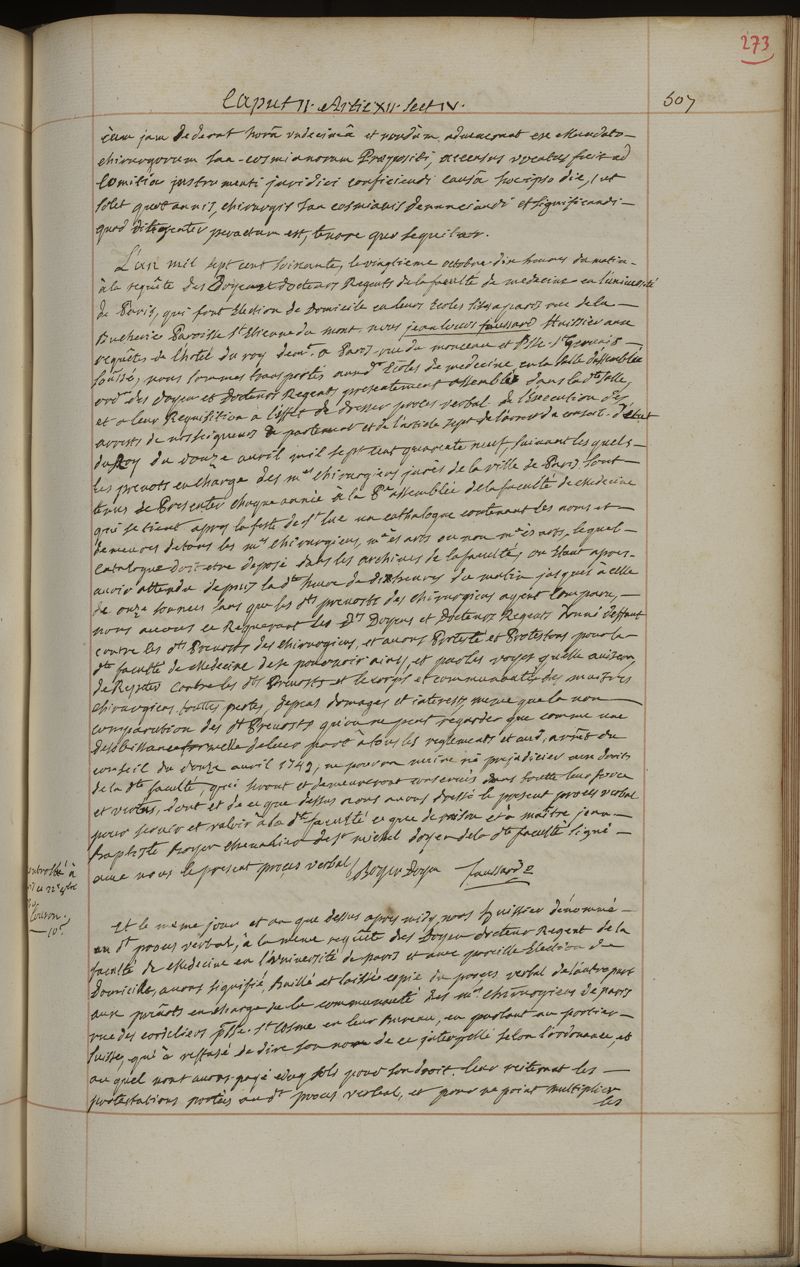 273
Caput II. Artic XII. Sect IV.
507
cum jam dederat horâ undecimâ et nondum advenerant ex Mandato
chirurgorum San-cosmianorum Præpositi, accensus vocatus fecit ad
Comitia instrumenti juridici conficiendi causâ hoc ipso die, ut
solet quotannis, chirurgis San cosmianis denunciandi et significandi
quod diligenter peractum est, tenore quo sequitur.
L'an mil sept cent soixante, le vingtieme octobre dix heures du matin
à la requête des Doyen et docteurs Regents de la faculté de medecine en l'université
de Paris, qui font Election de Domicile en leurs Ecoles sises a paris rue de la
Bucherie Paroisse St Etienne du mont. nous jean louis faussard Huissier aux
requêtes de l'hôtel du roy demt. a Paris rue du monceau et Psse St Gervais
soussé, nous sommes transportés auxd. Ecoles de medecine, en la Salle d'assemblée
ordre des Doyen et Docteurs Regents presentement assemblés dans lad. Salle,
et a leur Requisition a l'effet de dresser proces verbal de l'Execution des
arrests de nosseigneurs de parlement et de l'article sept de l'arrest du conseil d'état
du Roy du douze avril mil sept cent quarante neuf, suivant lesquels
les prevots en charge des mes chirurgiens jurés de la ville de Paris sont
tenus de Presenter chaque année à la Pre assemblée de la faculté de Medecine
qui se tient apres la feste de St luc un cathalogue contenant les noms et
demeures de tous les mes chirurgiens, mes ès arts ou non mes ès arts, lequel
catalogue doit etre deposé dans les archives de la faculté, ou Etant apres
avoir attendu depuis lade heure de dix heures du matin jusques à celle
de onze sonnées sans que les dts prevosts des chirurgiens ayent comparu,
nous avons ce Requerant les Drs Doyens et Docteurs Regents Donné deffaut
contre les dts Prevosts des chirurgiens, et avons Protesté et Protestons pour la
dte faculté de Medecine de se pourvoir ainsy, et par les voyes qu'elle avisera,
de Repeter contre les dts Prevosts et le corps et communauté des maitres
chirurgiens, touttes pertes, depens domages et interests meme que la non
comparution des dts Prevosts qu'on ne peut regarder que comme une
desobeissance formelle de leur part à tous les reglements et aud. arrêt du
conseil du douze avril 1749, ne pourra nuire ni prejudicier aux droits
de la dte faculté, qui seront et demeureront conservés dans toutte leur force
et vertus, dont et de ce que dessus nous avons dressé le present proces verbal
pour servir et valoir à la dte faculté ce que de raison et à maître jean
Baptiste Boyer chevalier de St michel doyen de la dte faculté signé
avec nous le present proces verbal. Boyer Doyen faussard
controllé à
ce 22 8bre
Couson.
10s
Et le meme jour et an que dessus apres midy, nous Huissier dénommé
au dt proces verbal, à la meme requête des Doyen docteur Regent de la
faculté de Medecine en l'université de paris et avec pareille Election de
Domicille, avons signifié, Baillé et laissé copie du proces verbal de l'autre part
aux prevosts en charge de la communauté des mes chirurgiens de paris
rue des cordeliers psse St Cosme en leur Bureau, en parlant au portier
suisse, qui a reffusé de dire son nom de ce interpellé selon l'ordonance, et
au quel nous avons payé cinq sols pour son droit. leur reiterant les
protestations portées au dt proces verbal, et pour ne point multiplier
les